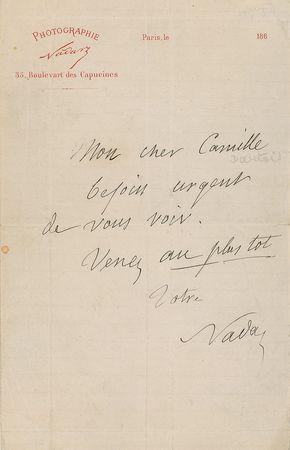 PHOTOGRAPHIE
Nadar
35, Boulevard des Capucines
Paris, le 186
Mon cher Camille
besoin urgent
de vous voir.
Venez au plus tot
Votre
Nadar